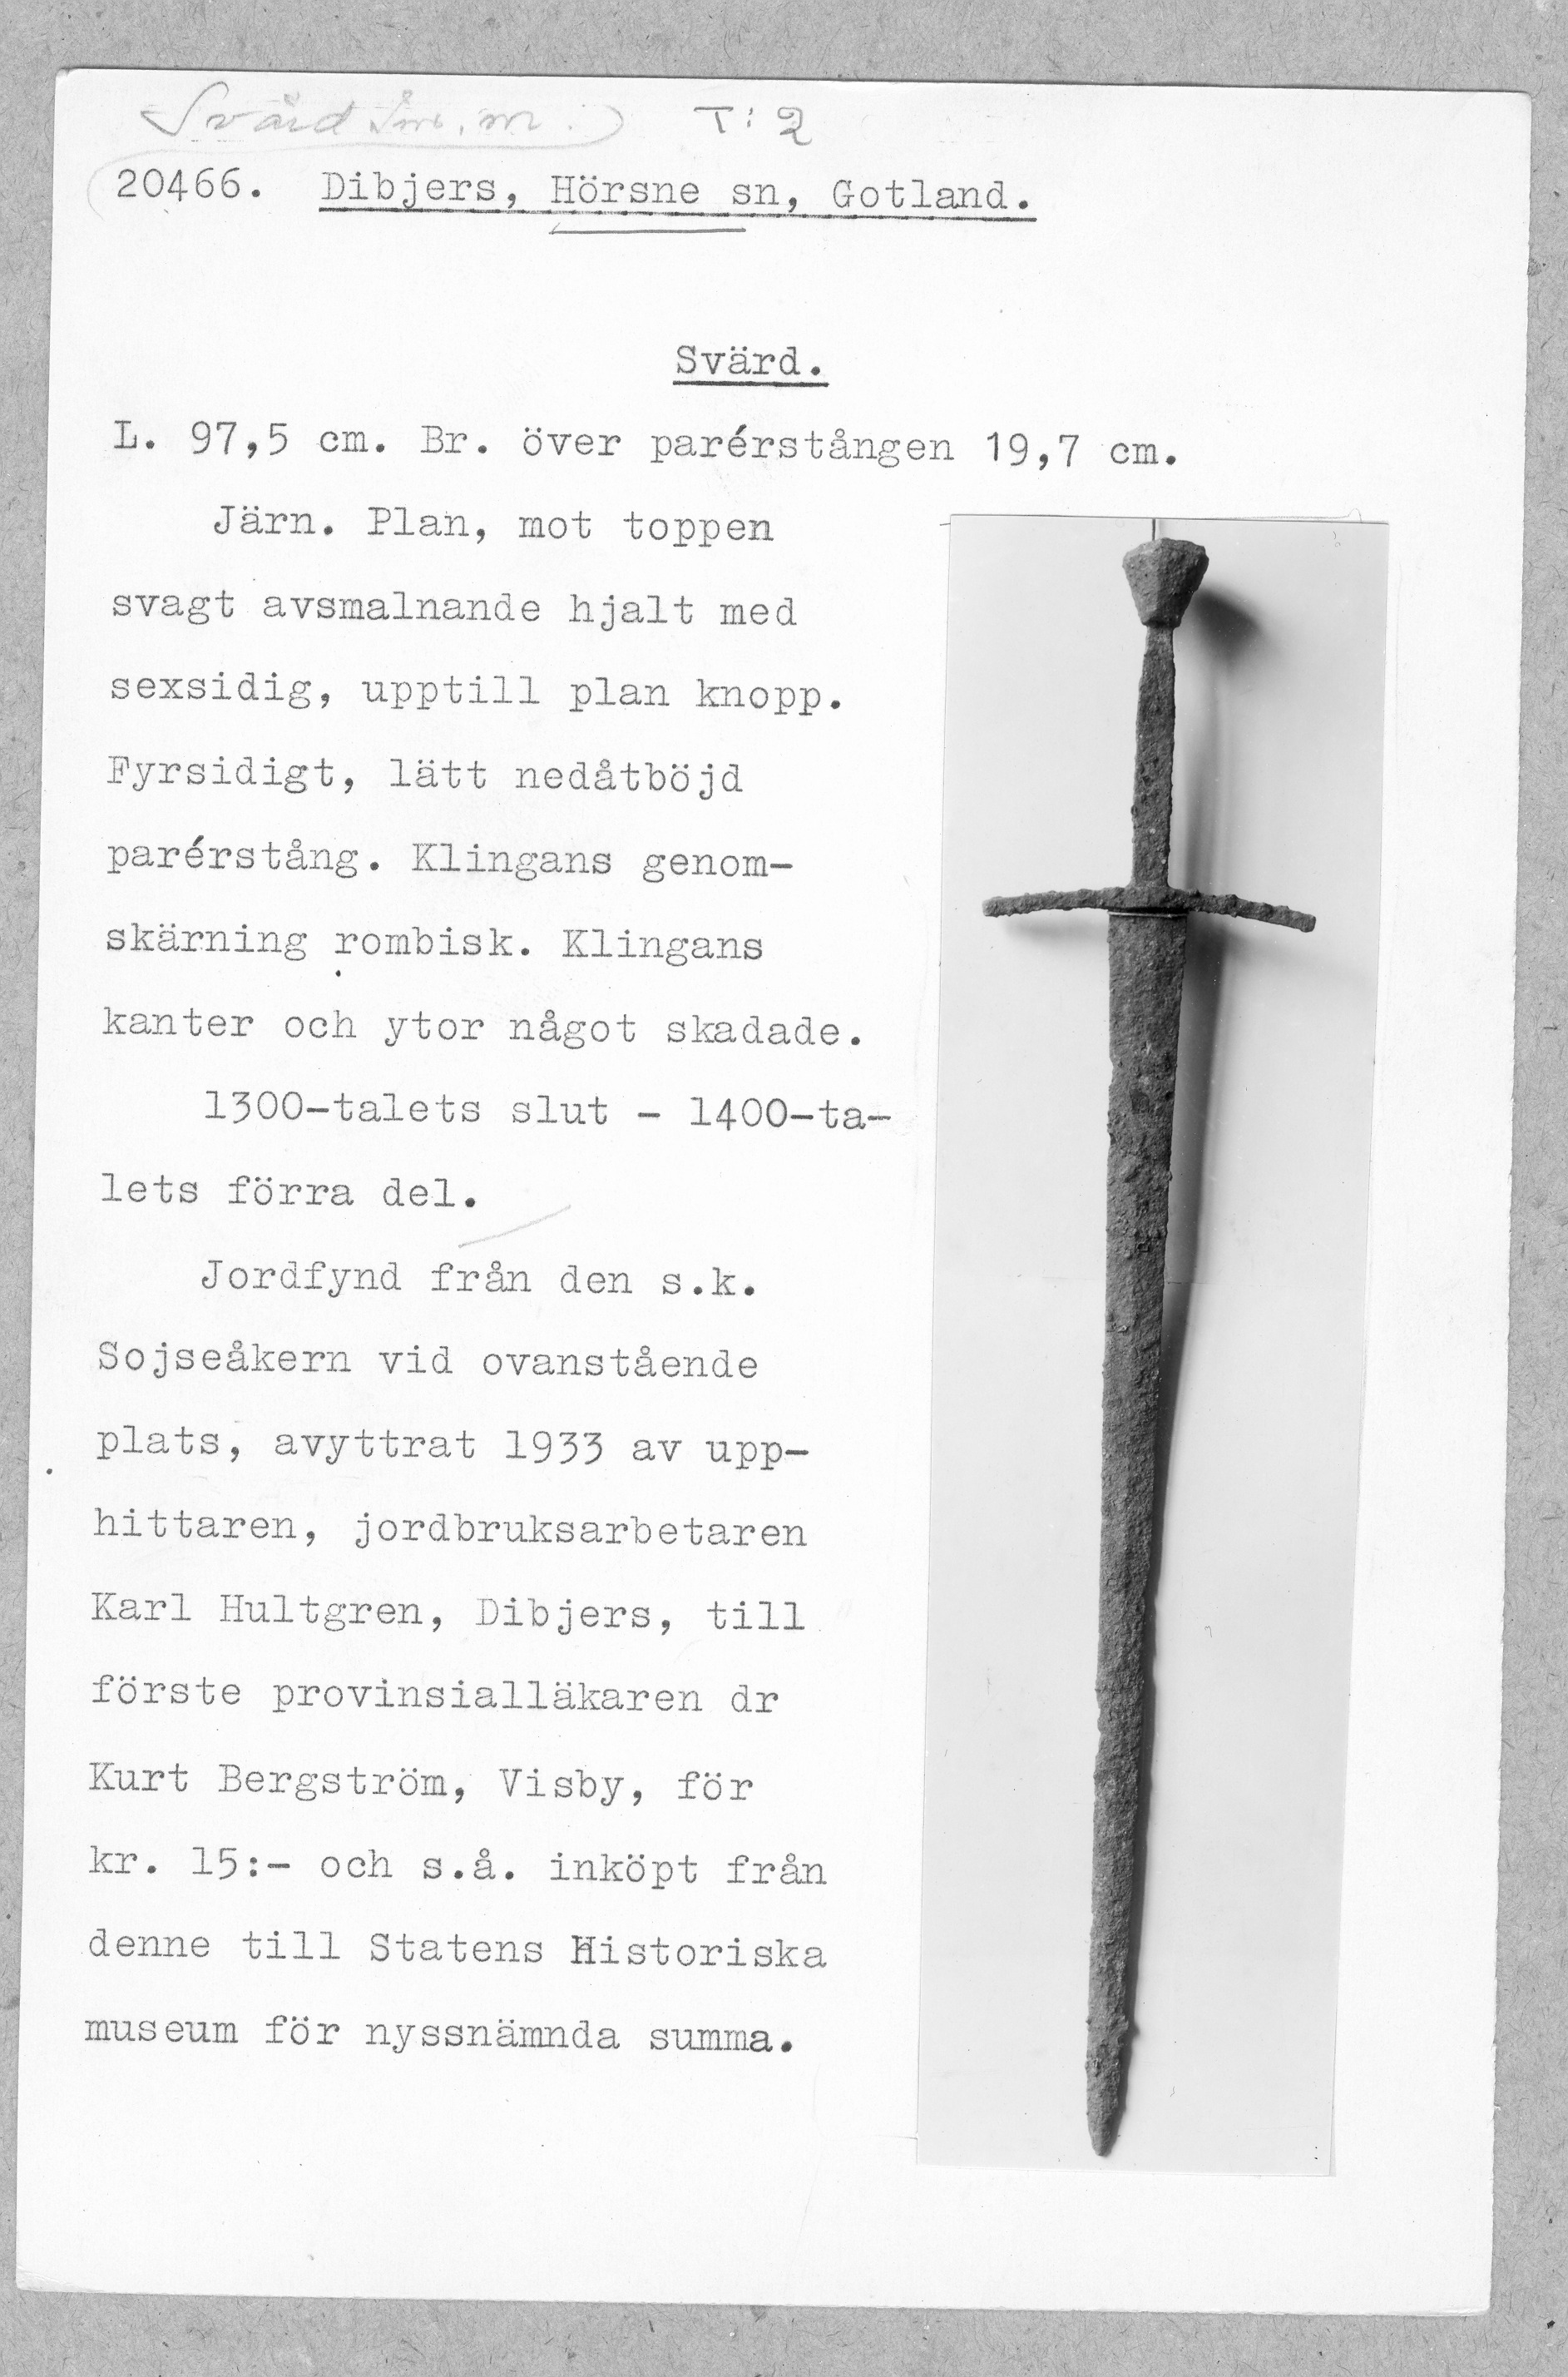 Svärd m. m. T: 2
20466. Dibjers, Hörsne sn, Gotland.
Svärd.
L. 97,5 cm. Br. över parérstången 19,7 cm.
Järn. Plan, mot toppen
svagt avsmalnande hjalt med
sexsidig, upptill plan knopp.
Fyrsidigt, lätt nedåtböjd
parérstång. Klingans genom-
skärning rombisk. Klingans
kanter och ytor något skadade.
1300-talets slut - 1400-ta-
lets förra del.
Jordfynd från den s.k.
Sojseåkern vid ovanstående
plats, avyttrat 1933 av upp-
hittaren, jordbruksarbetaren
Karl Hultgren, Dibjers, till
förste provinsialläkaren dr
Kurt Bergström, Visby, för
kr. 15:- och s.å. inköpt från
denne till Statens Historiska
museum för nyssnämnda summa.